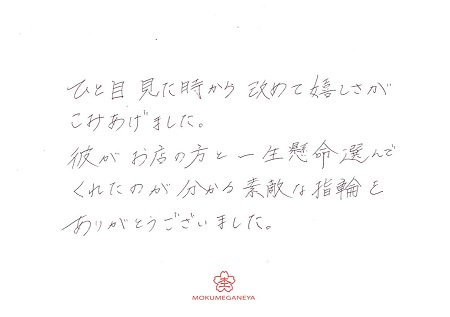 ひと目 見た時から 改めて嬉しさが
こみあげました。
彼が お店の方と 一生懸命 選んで
くれたのが 分かる 素敵な指輪を
ありがとうございました。
MOKUMEGANEYA